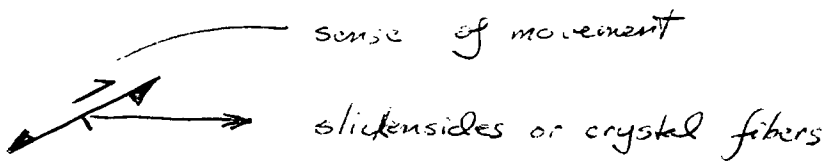 sense of movement
slickensides or crystal fibers